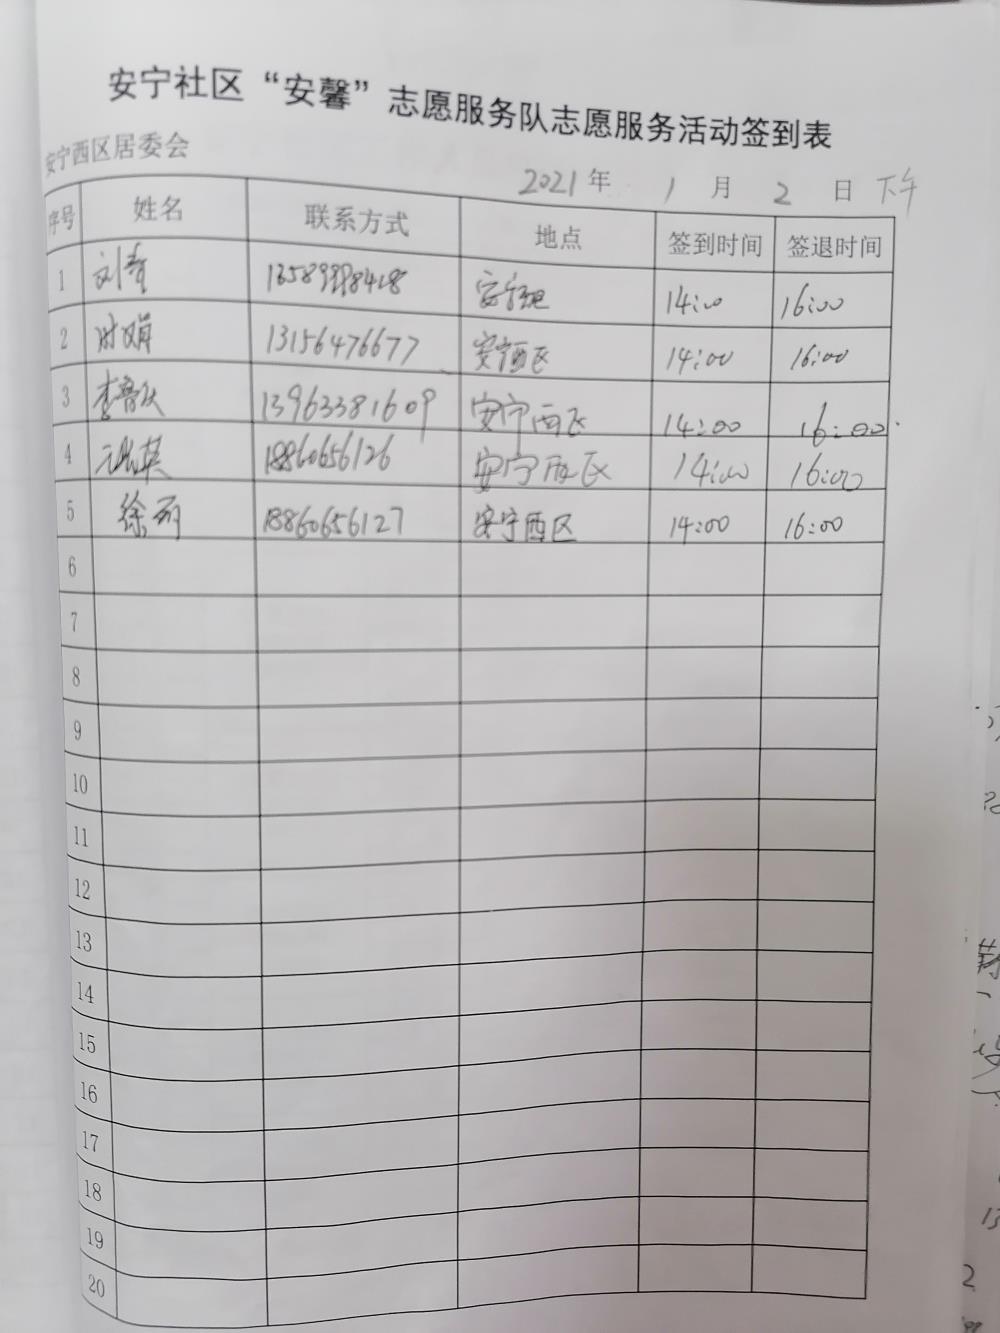 安宁社区“安馨”志愿服务队志愿服务活动签到表
安宁西区居委会
2021年 1月 2日 下午
序号 姓名 联系方式 地点 签到时间 签退时间
1 刘青 安宁西区 14:00 16:00
2 时娟 13156476677 安宁西区 14:00 16:00
3 李鲁欣 13963381609 安宁西区 14:00 16:00
4 18860656126 安宁西区 14:00 16:00
5 徐丽 18860656127 安宁西区 14:00 16:00
6
7
8
9
10
11
12
13
14
15
16
17
18
19
20